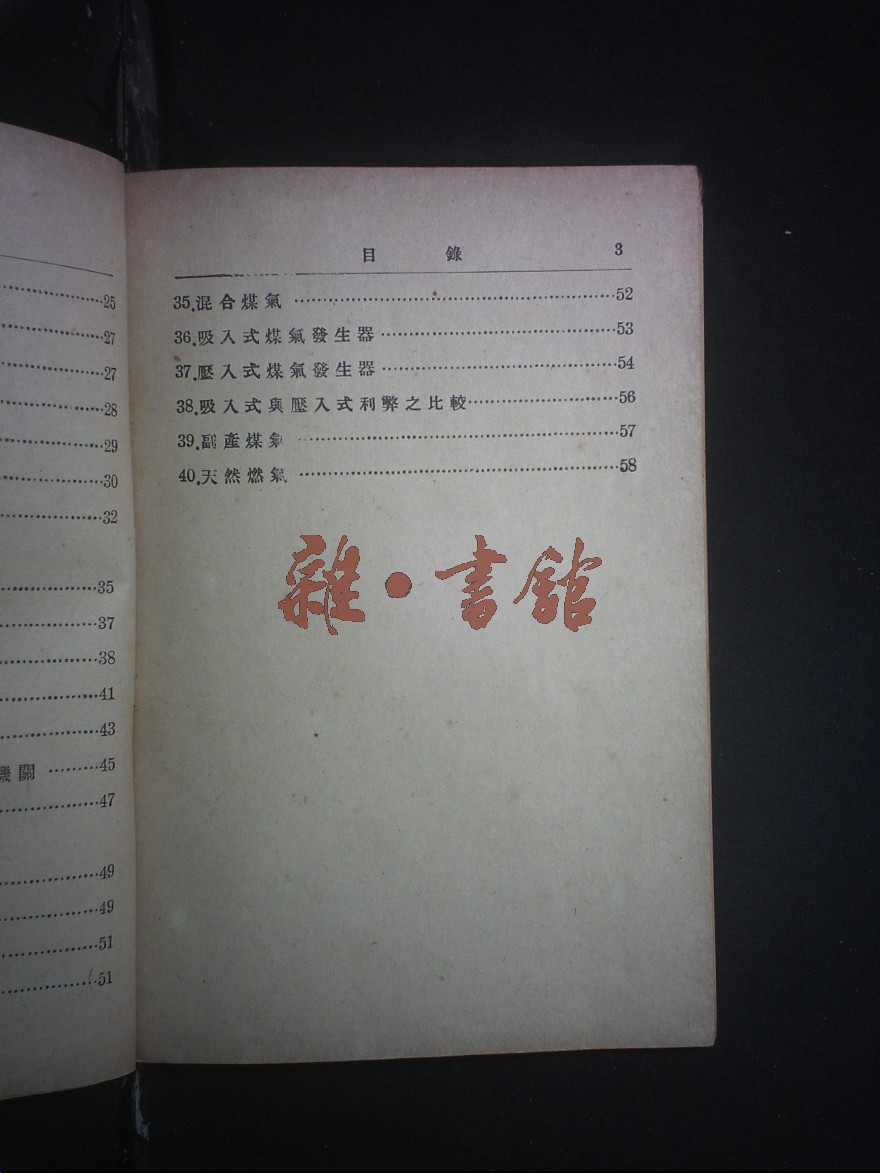 25
27
27
28
29
30
32
35
37
38
41
43
機關 ………45
47
49
49
51
51
目錄 3
35.混合煤氣 ………52
36.吸入式煤氣發生器 ………53
37.壓入式煤氣發生器 ………54
38.吸入式與壓入式利弊之比較 ………56
39.副產煤氣 ………57
40.天然燃氣 ………58
雜·書館